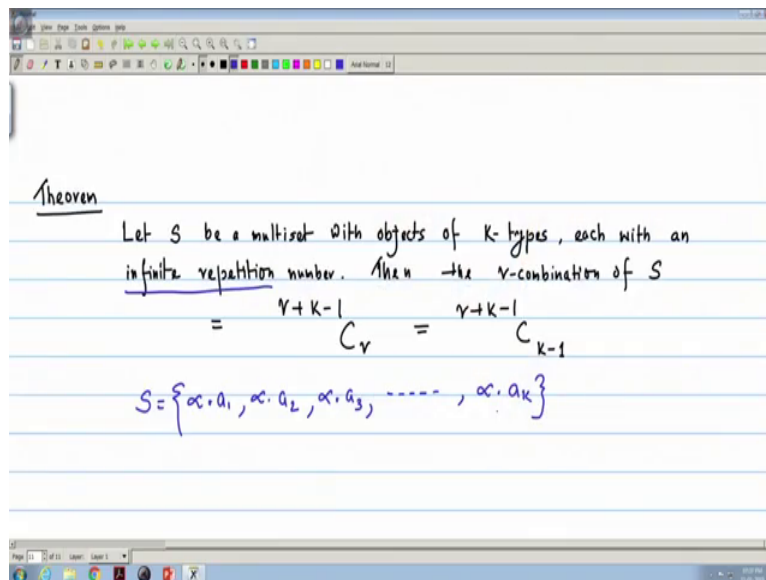 View Page Tools Options Help
Theorem
Let S be a multiset with objects of K-types, each with an
infinite repetition number. Then the r-combination of S
= ^{r+k-1}C_r = ^{r+k-1}C_{k-1}
S = {∝.a₁, ∝.a₂, ∝.a₃, -----, ∝.aₖ}
Page 11 of 11 Layer: Layer 1